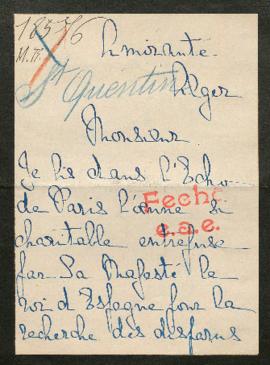 18576
St Quentin
Alger
Monsieur
Je lis dans l'Echo
de Paris l'œuvre si
Fecha
charitable entreprise
e.a.e.
par Sa Majesté le
roi d'Espagne pour la
recherche des disparus